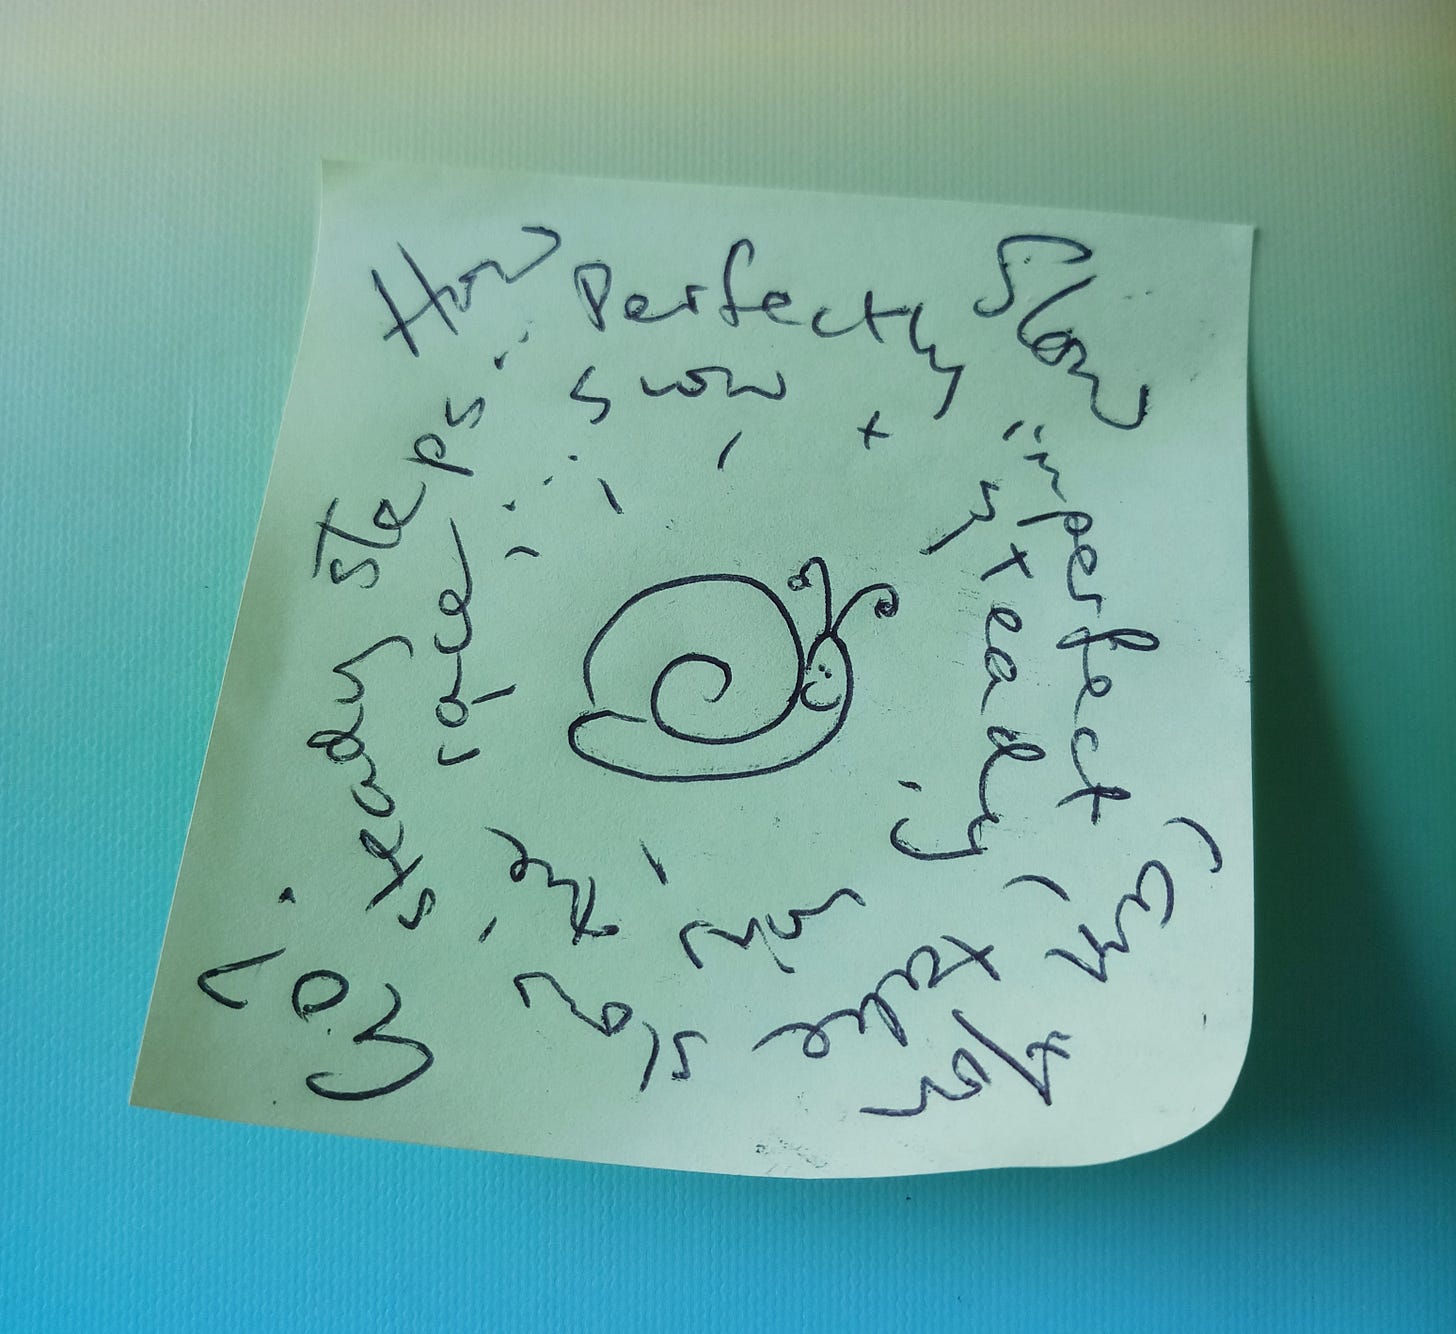 How Slow Can You Go?
Perfectly imperfect, take slow, steady steps...
slow + steady, win the race...